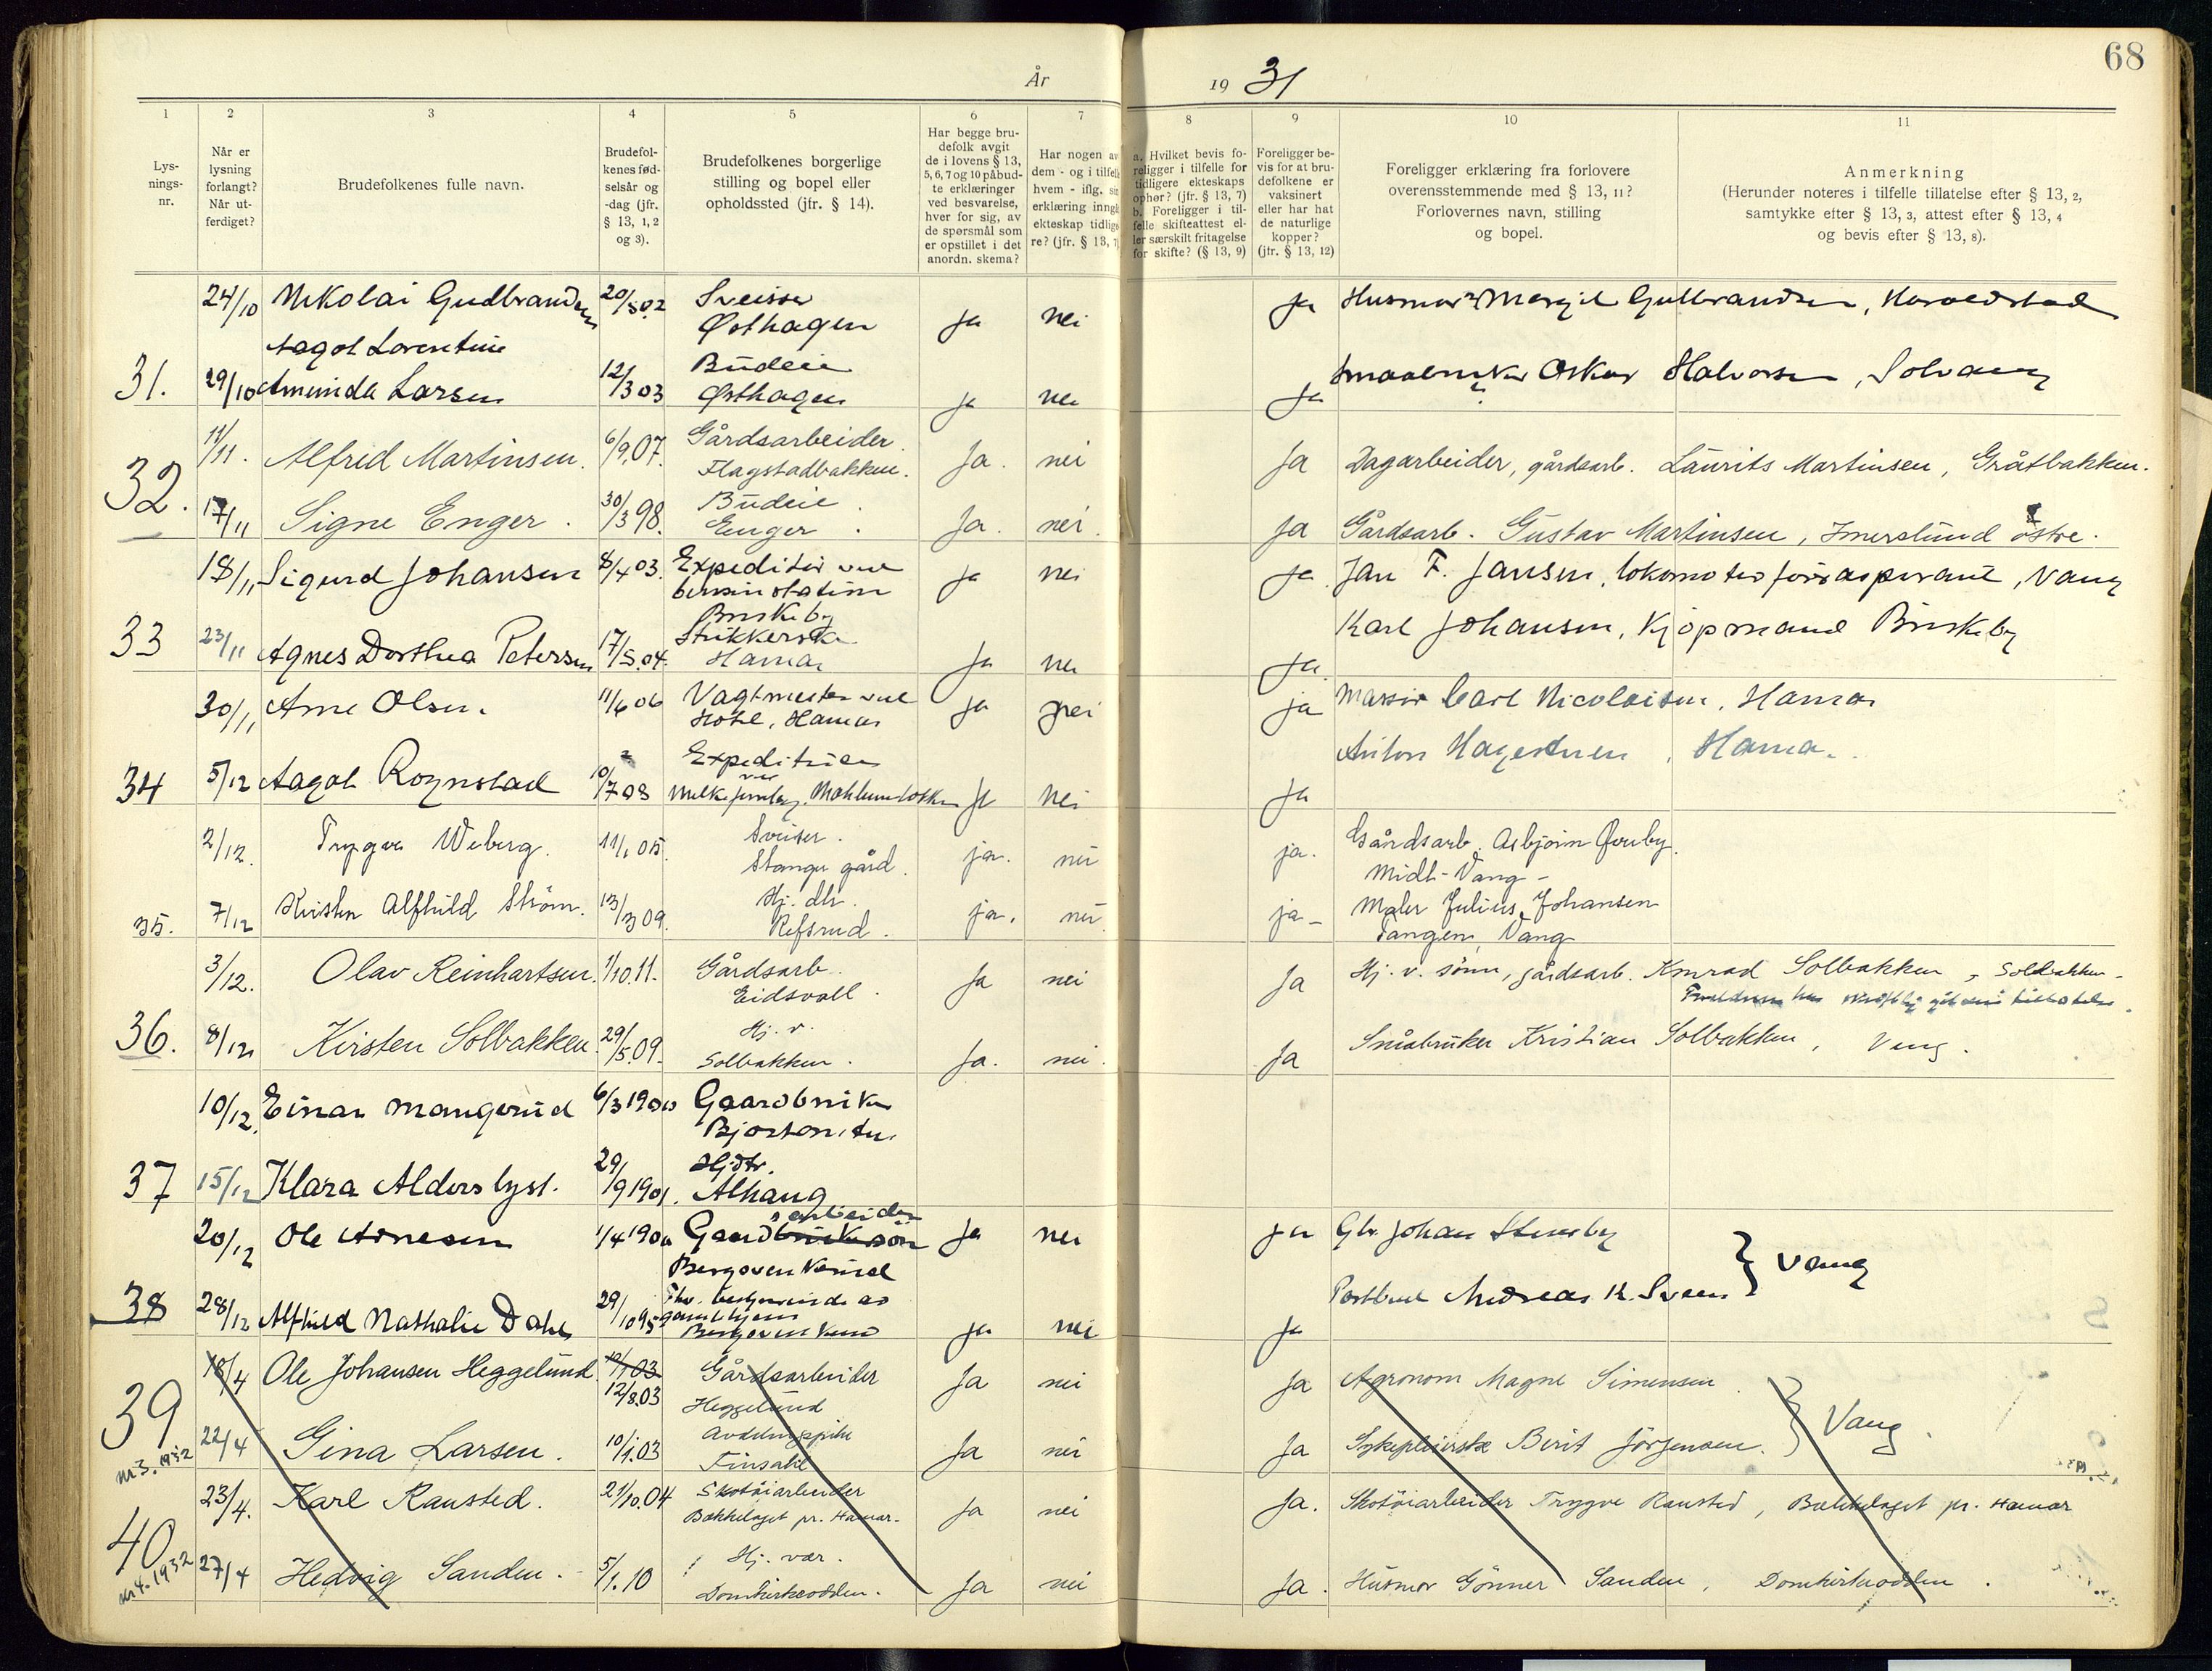 År 1931
68
1
2
3
4
5
6
7
8
9
10
11
Lys-
nings-
nr.
Når er
lysning
forlangt?
Når ut-
ferdiget?
Brudefolkenes fulle navn.
Brudefol-
kenes fød-
selsår og
-dag (jfr.
§ 13, 1, 2
og 3).
Brudefolkenes borgerlige
stilling og bopel eller
opholdssted (jfr. § 14).
Har begge bru-
defolk avgit
de i lovens § 13,
5, 6, 7 og 10 påbud-
te erklæringer
ved besvarelse,
hver for sig, av
de spørsmål som
er opstillet i det
anordn. skema?
Har nogen av
dem - og i tilfelle
hvem - iflg. sin
erklæring inngå
ekteskap tidlige-
re? (jfr. § 13, 7
a. Hvilket bevis fo-
religger i tilfelle for
tidligere ekteskaps
ophør? (jfr. § 13, 7)
b. Foreligger i til-
felle skifteattest el-
ler særskilt fritagelse
for skifte? (§ 13, 9)
Foreligger be-
vis for at bru-
defolkene er
vaksinert
eller har hat
de naturlige
kopper?
(jfr. § 13, 12)
Foreligger erklæring fra forlovere
overensstemmende med § 13, 11?
Forlovernes navn, stilling
og bopel.
Anmerkning
(Herunder noteres i tilfelle tillatelse efter § 13, 2,
samtykke efter § 13, 3, attest efter § 13, 4
og bevis efter § 13, 8).
24/10 Nikolai Gudbrandsen 20/5 02 Sveisser Østhagen Ja nei Ja Husmor Margit Gulbrandsen, Haraldstad
31. 29/10 Aagot Lorentine Amunda Larsen 12/3 03 Budeie Østhagen Ja nei Ja Smaabruker Oskar Halvorsen, Solvang
32. 11/11. Alfred Martinsen. 6/9.07. Gårdsarbeider Flagstadbakken. Ja. nei Ja Dagarbeider, gårdsarb. Laurits Martinsen, Gråtbakken.
17/11 Signe Enger. 30/3 98. Budeie Enger. Ja. nei. Ja Gårdsarb. Gustav Martinsen, Imerslund østre.
18/11 Sigurd Johansen 8/4 03. Expeditør ved bensinstation Briskeby Ja nei Ja. Jan F. Jansen, lokomotivføreraspirant, Vang
33 23/11 Agnes Dorthea Petersen 17/5.04. Strikkerska Hamar Ja nei Ja. Karl Johansen, Kjøpmand Briskeby
30/11 Arne Olsen. 11/6 06 Vagtmester ved Hotel, Hamar Ja nei ja Carl Nicolaisen, Hamar
34 5/12 Aagot Rognstad 10/7 08 Expeditrice ved Ja nei Ja Anton Hagestuen, Hamar.
2/12. Trygve Weberg. 11/1 05. Sveiser. Stange gård. ja. nei ja. Gårdsarb. Asbjørn Finsby. Midt-Vang -
35. 7/12 Kirsten Alfhild Strøm. 13/3 09. Hj. dtr. Refsrud. ja. nei. ja - Maler Julius Johansen Tangen, Vang
3/12. Olav Reinhartsen. 1/10.11. Gårdsarb. Eidsvoll. Ja nei Ja Hj. v. sønn, gårdsarb. Konrad Solbakken, Solbakken -
36. 8/12 Kirsten Solbakken. 29/5.09. Hj. v. Solbakken. Ja. nei. Ja Småbruker Kristian Solbakken, Vang.
10/12. Einar Mangerud 6/3 1900 Gaardbruker
37 15/12 Klara Alderslyst. 29/9 1901. Hjdtr. Alhaug
20/12 Ole Arnesen 1/4 1900 Gaardsarbeider Ja nei Ja Gbr. Johan Stensby } Vang
38 28/12 Alfhild Nathalie Dahl 29/10 95 Ja nei Ja Postbud Andreas K. Sveen
39 nr 3. 1932 18/4 Ole Johansen Heggelund 12/8.03 Gårdsarbeider Heggelund Ja nei Ja Agronom Magne Simensen. } Vang.
22/4 Gina Larsen. 10/1.03 Avdelingspike Finsahl Ja nei Ja Sykepleierske Berit Jörgensen.
40 nr 4. 1932 23/4. Karl Ransted. 21/10.04 Skotöiarbeider Bækkelaget pr. Hamar. Ja nei Ja. Skotöiarbeider Trygve Ransted, Bækkelaget pr. Hamar
27/4 Hedvig Sanden. 5/1.10 Hj. vær. Domkirkeodden. Ja nei Ja. Husmor Gönner Sanden, Domkirkeodden.